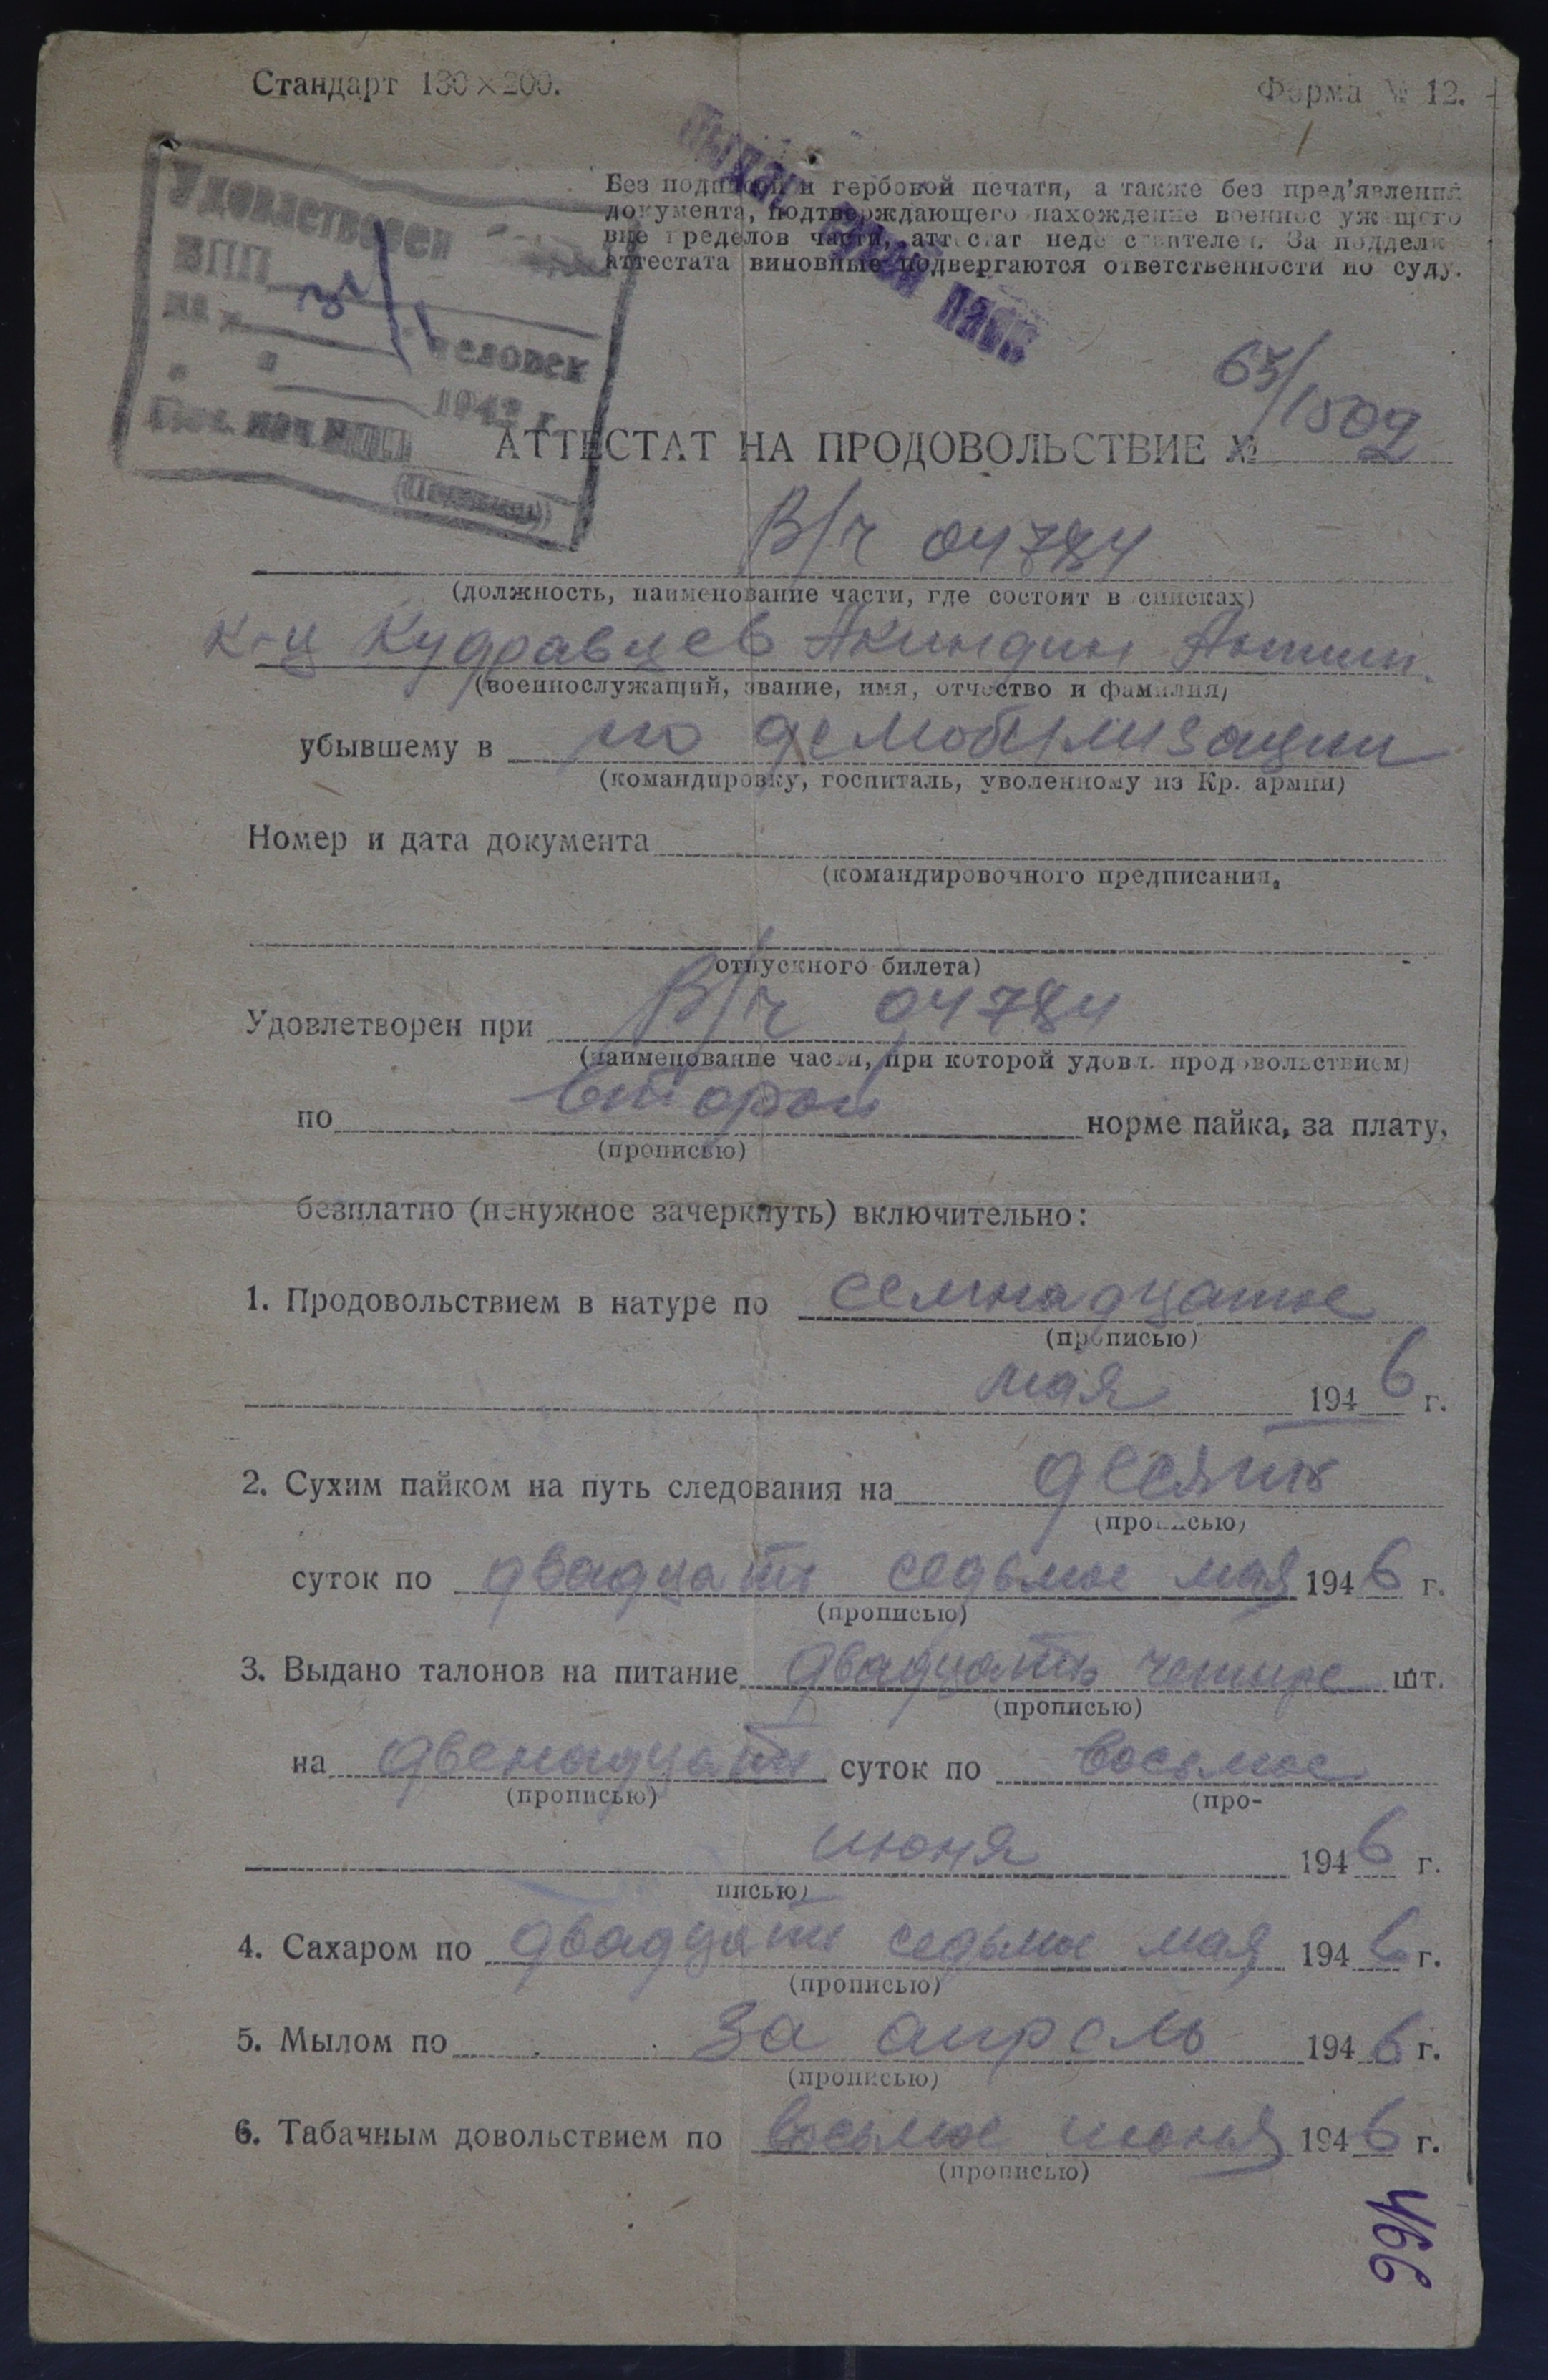 Стандарт 130×200.
Форма № 12.
Удовлетворен
ВПП
на человек
194 г.
Нач. ВПП
Без подписи и гербовой печати, а также без пред'явления
документа, подтверждающего нахождение военнослужащего
вне пределов части, аттестат недействителен. За подделку
аттестата виновные подвергаются ответственности по суду.
65/1509
АТТЕСТАТ НА ПРОДОВОЛЬСТВИЕ №
В/ч 04784
(должность, наименование части, где состоит в списках)
к-ц Кудравцев Акиндин Антип.
(военнослужащий, звание, имя, отчество и фамилия)
убывшему в по демобилизации
(командировку, госпиталь, уволенному из Кр. армии)
Номер и дата документа
(командировочного предписания,
отпускного билета)
Удовлетворен при В/ч 04784
(наименование части, при которой удовл. продовольствием)
по второй норме пайка, за плату,
(прописью)
безплатно (ненужное зачеркнуть) включительно:
1. Продовольствием в натуре по семнадцатое
(прописью)
мая 1946 г.
2. Сухим пайком на путь следования на десять
(прописью)
суток по двадцать седьмое мая 1946 г.
(прописью)
3. Выдано талонов на питание двадцать четыре шт.
(прописью)
на двенадцать суток по восьмое
(прописью) (про-
июня 1946 г.
писью)
4. Сахаром по двадцать седьмое мая 1946 г.
(прописью)
5. Мылом по за апрель 1946 г.
(прописью)
6. Табачным довольствием по восьмое июня 1946 г.
(прописью)
466